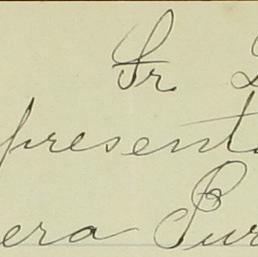 Sr. D
presenta
era Pur